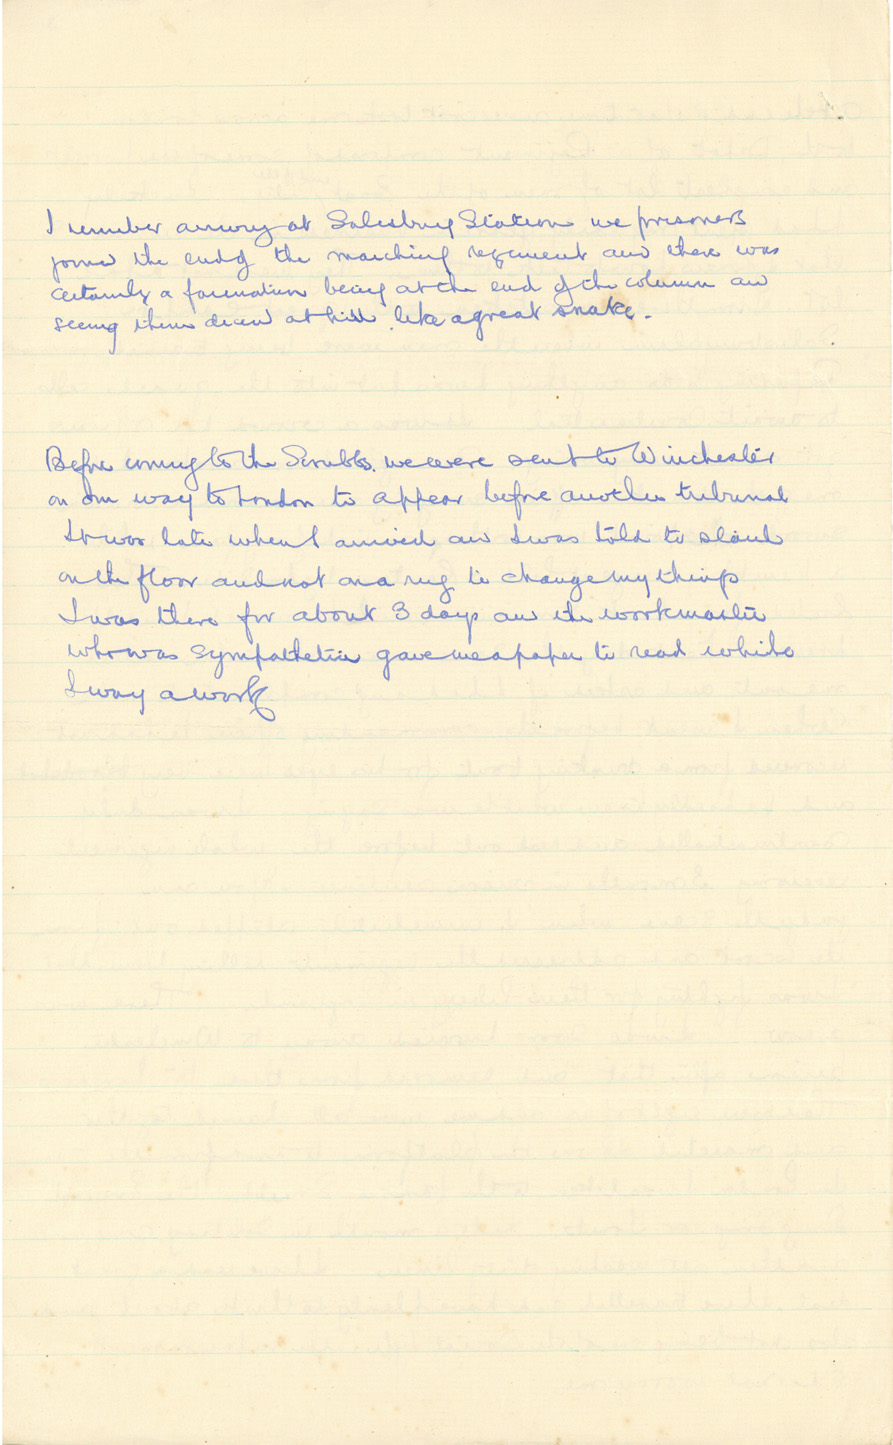 I remember arriving at Salisbury Station we prisoners
joined the end of the marching regiment and there was
certainly a formation being at the end of the column and
seeing them down a hill like a great snake.
Before coming to the Scrubbs. we were sent to Winchester
on our way to London to appear before another tribunal
It was late when I arrived and I was told to stand
on the floor and not on a rug to change my things
I was there for about 3 days and the workmaster
who was sympathetic gave me a paper to read while
I way a work